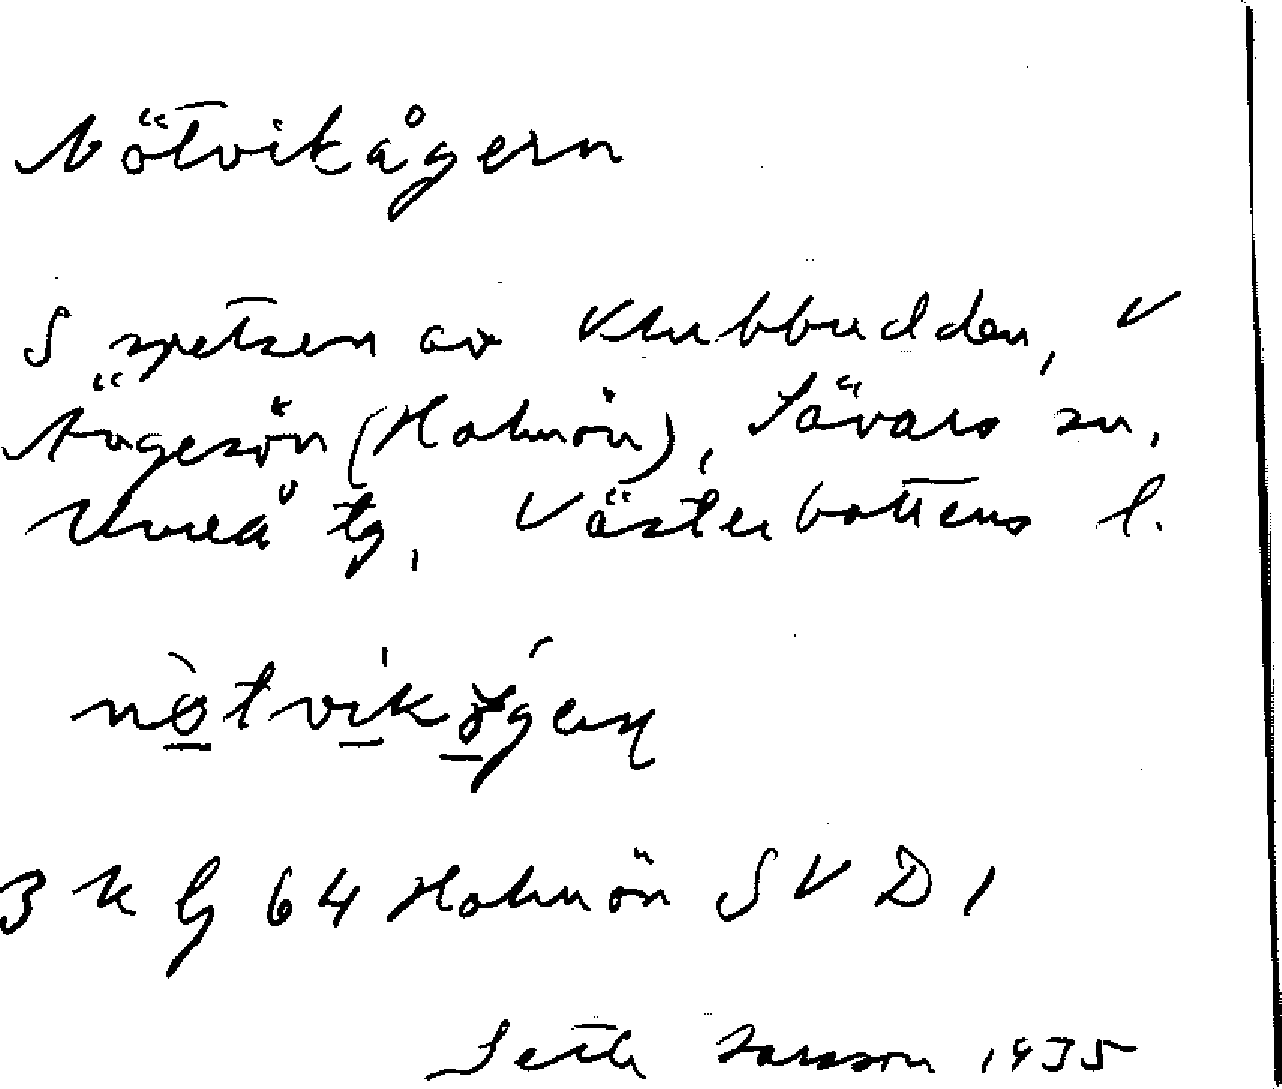 Nötvikågern
S spetsen av Klubbudden, V
Ängesön (Holmön), Sävars sn,
Umeå tg, Västerbottens l.
3 k G 64 Holmön SV D 1
Seth 1935